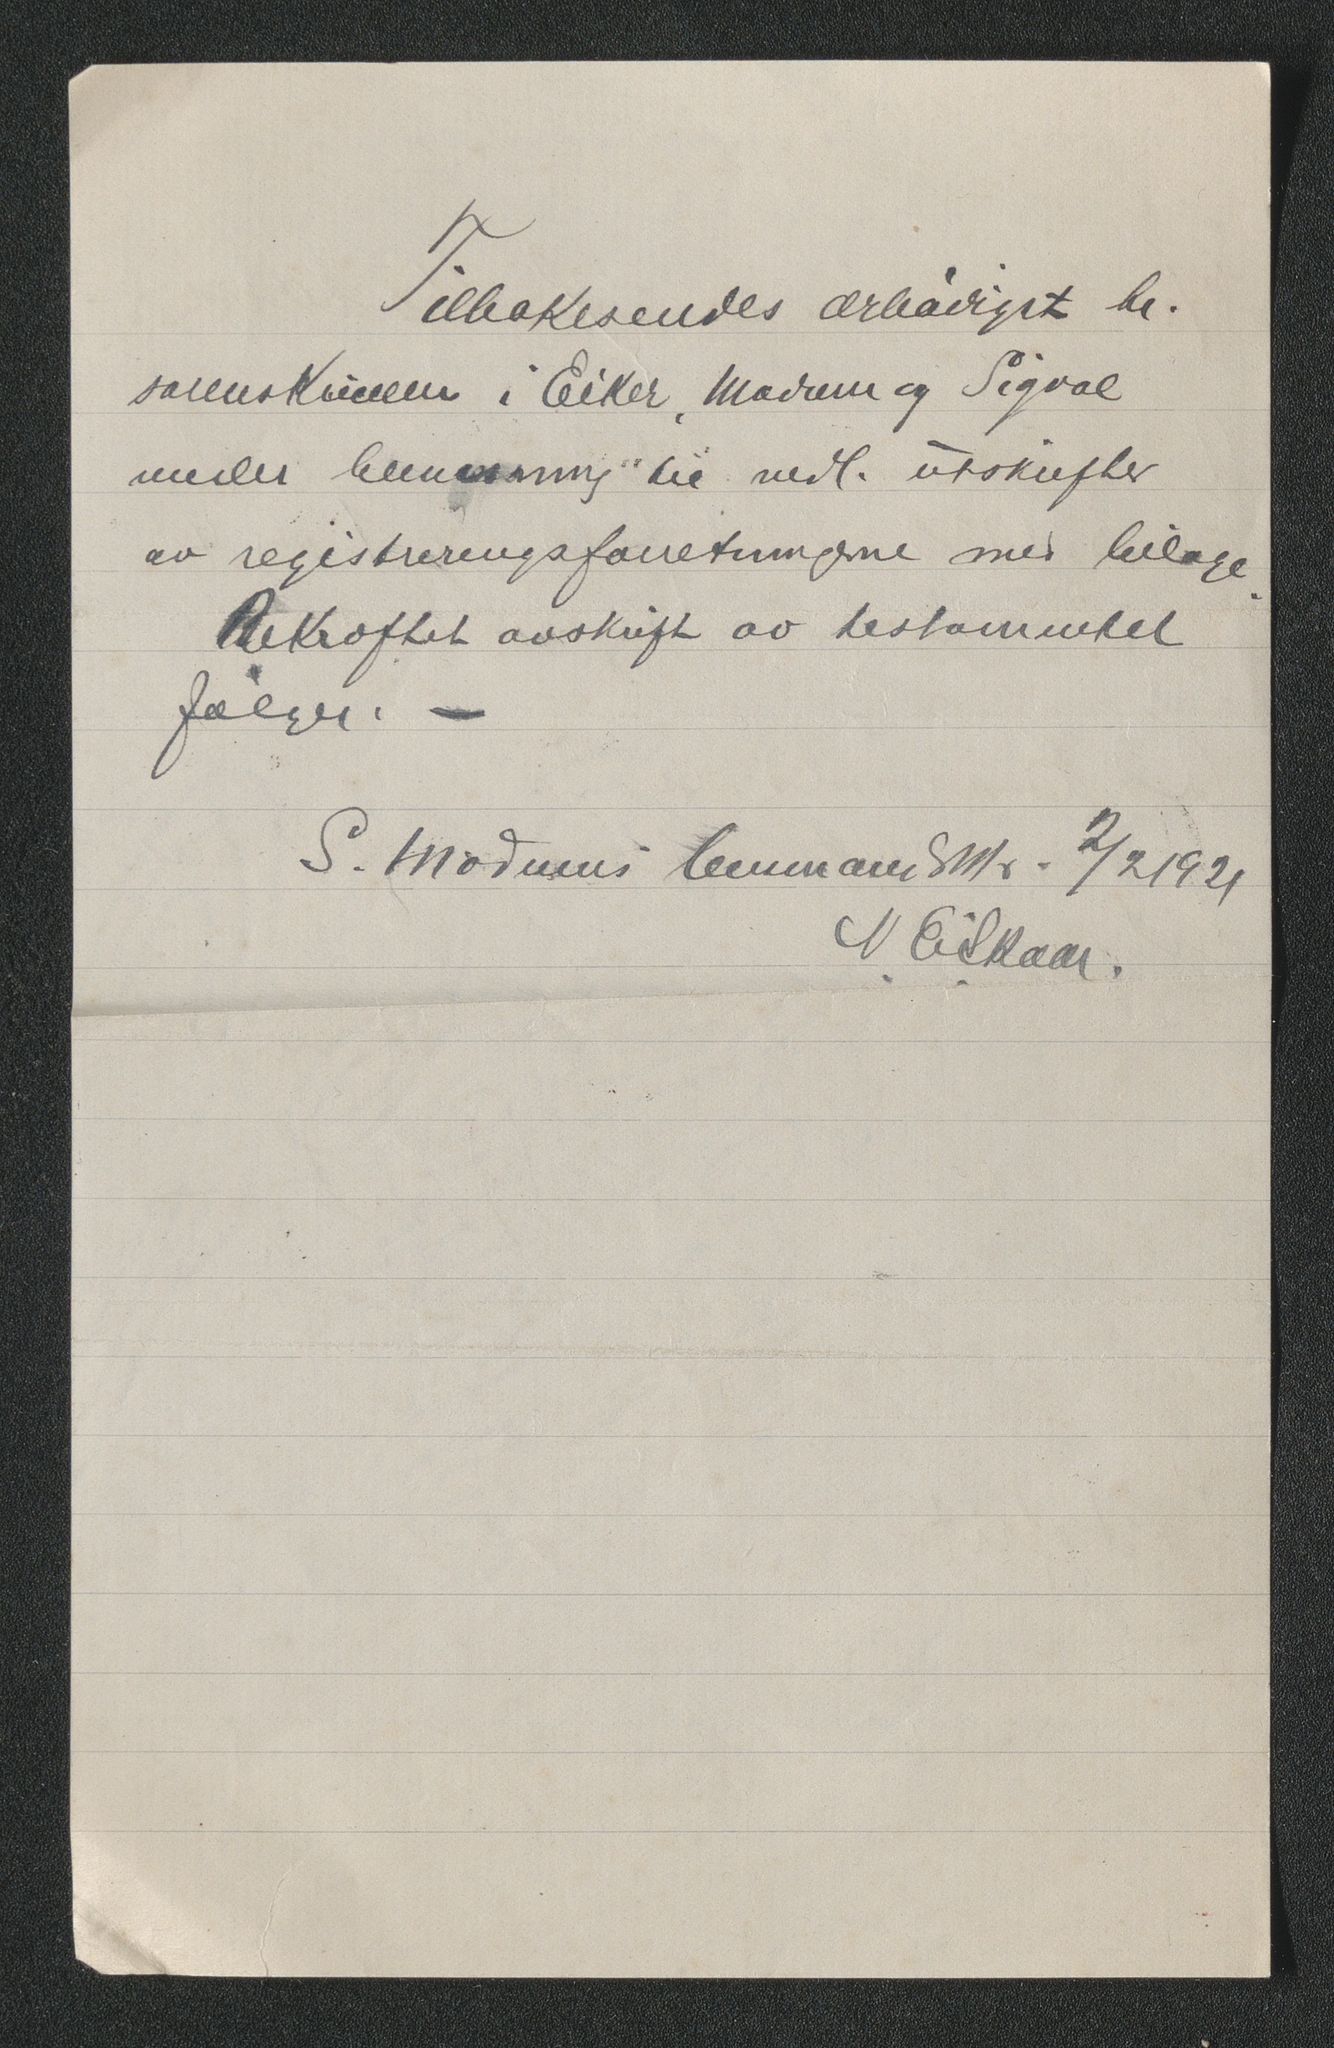 Tilbakesendes ærbødigst hr.
sorenskriveren i Eiker, Modum og Sigdal
under henvisning til vedl. utskrifter
av registreringsforretningerne med bilage.
Bekræftet avskrift av testamentet
følger. —
S. Modums lensmannsktr. 2/2 1921
N. Eidkaar.